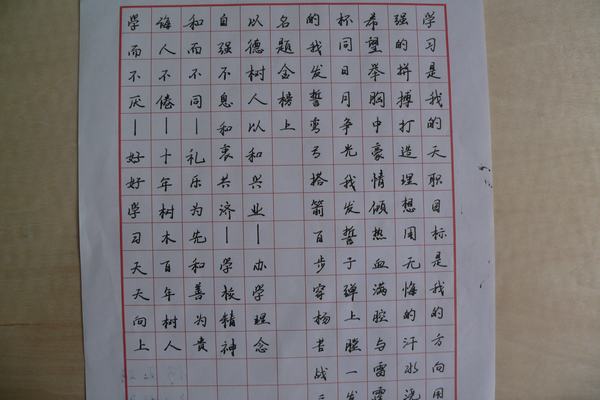 学习是我的天职目标是我的方向用
强的拼搏打造理想用无悔的汗水浇
希望举胸中豪情倾热血满腔与雷霆
杯同日月争光我发誓子弹上膛一发
的我发誓弯弓搭箭百步穿杨苦战三
名题金榜上
以德树人以和兴业—办学理念
自强不息和衷共济—学校精神
和而不同—礼乐为先和善为贵
诲人不倦—十年树木百年树人
学而不厌—好好学习天天向上